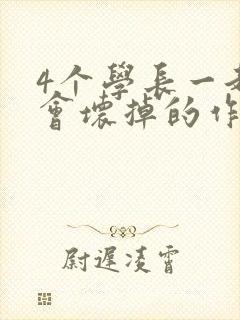 4个學長一起
會壞掉的作
尉遲凌霄